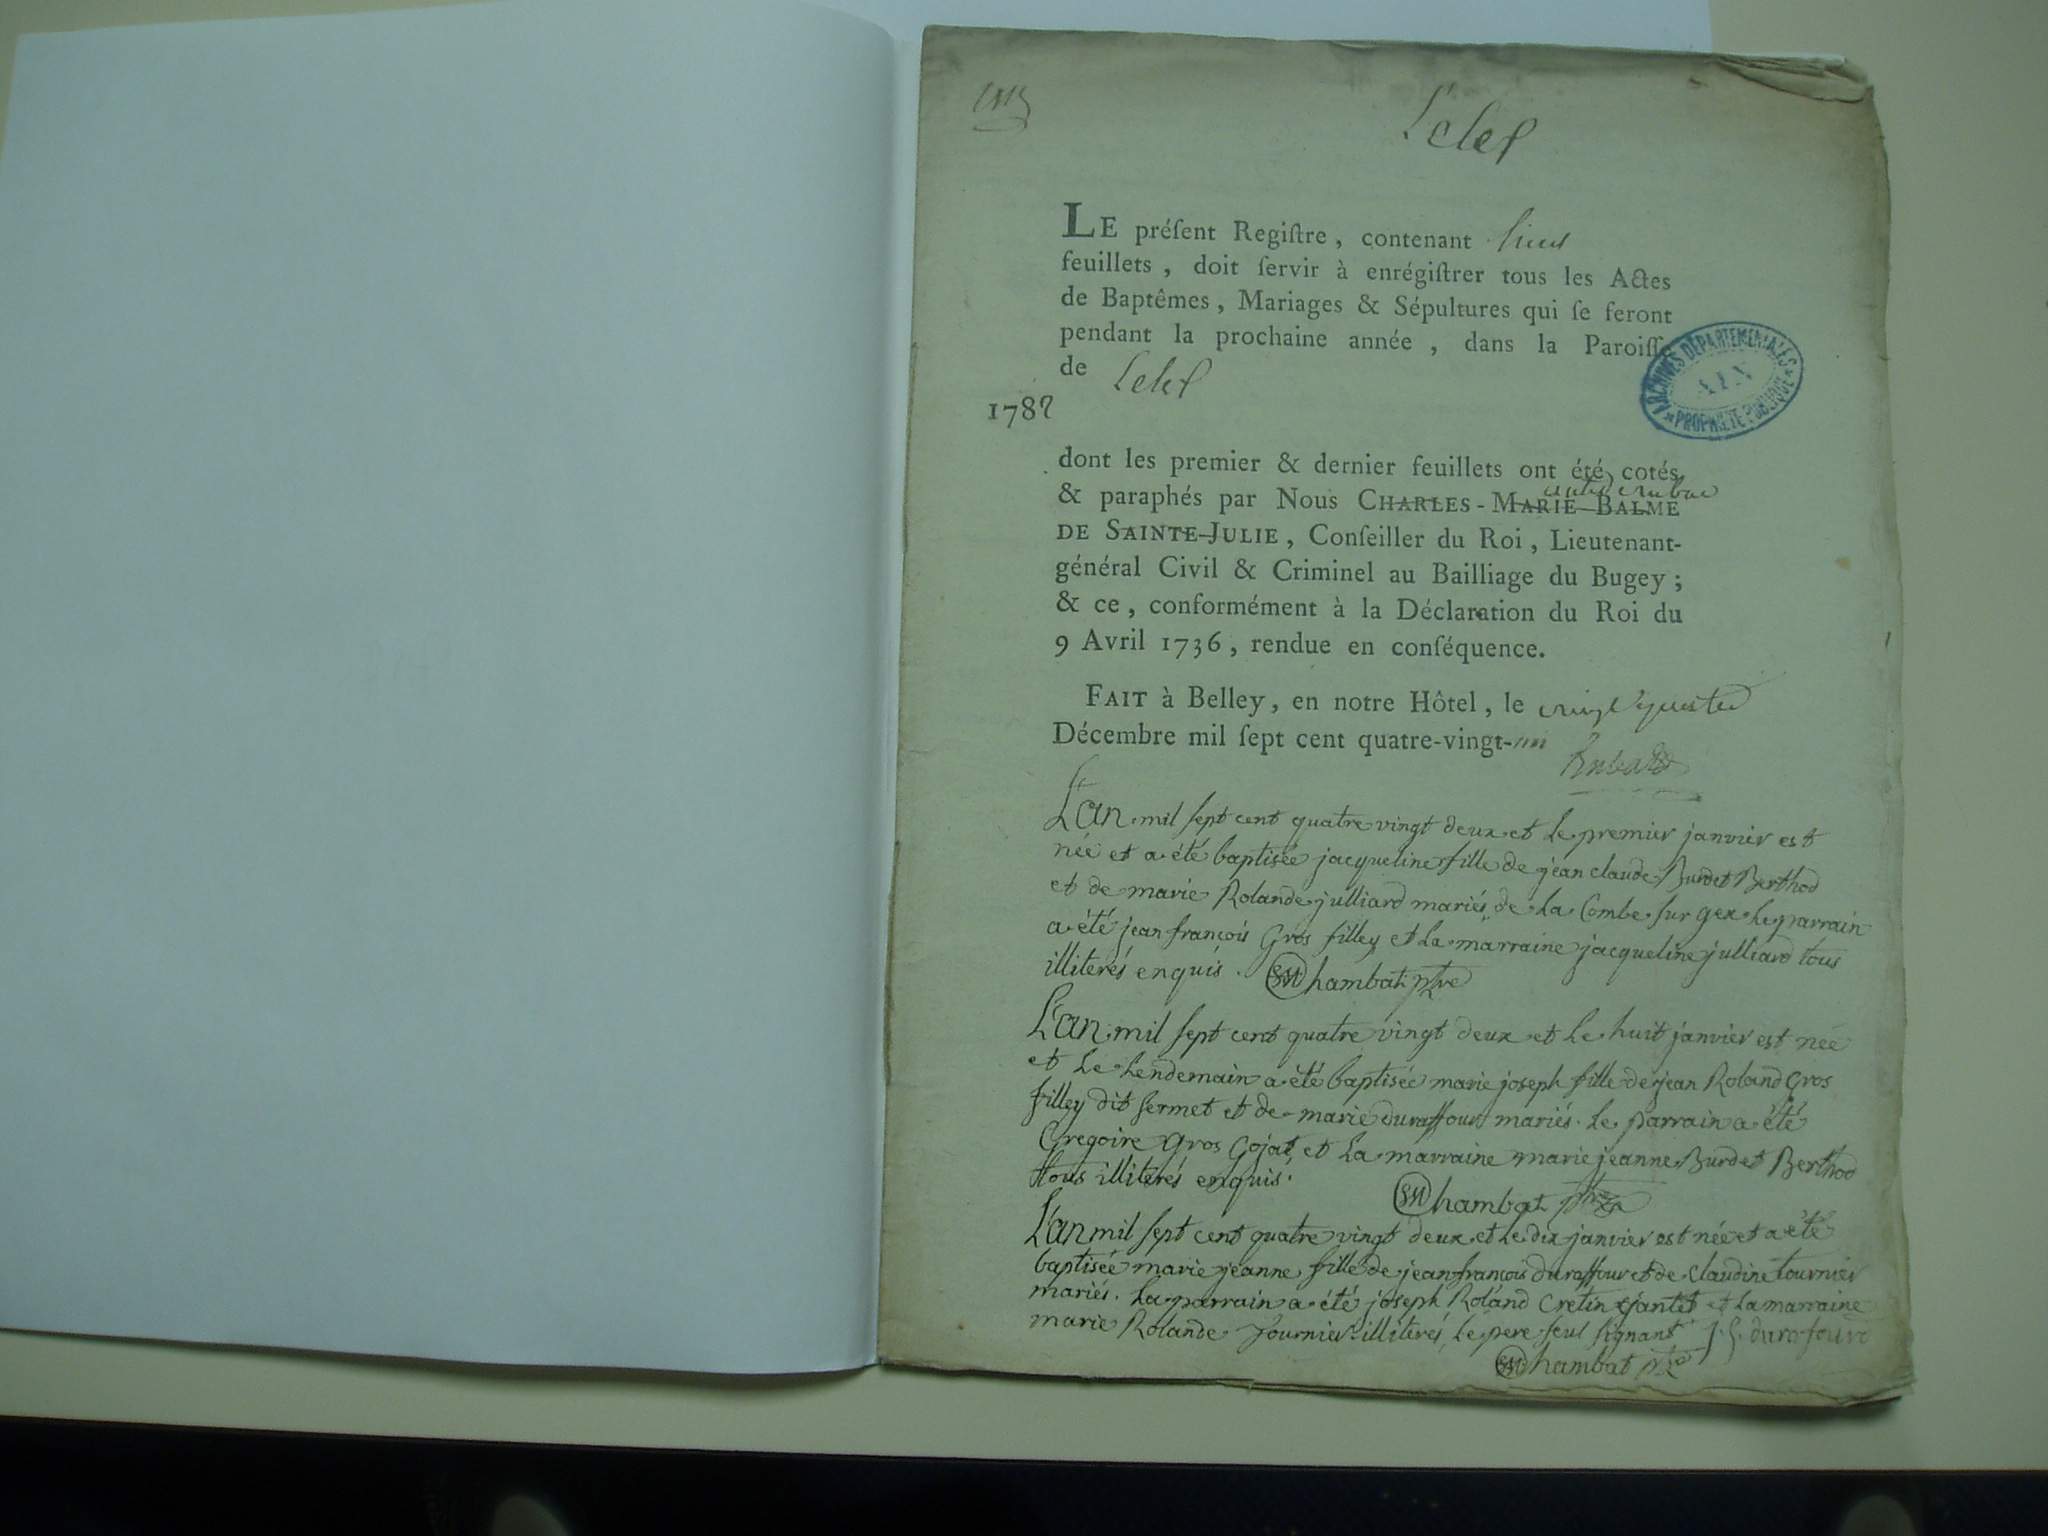 Lelex
LE préſent Regiſtre, contenant
feuillets, doit ſervir à enrégiſtrer tous les Actes
de Baptêmes, Mariages & Sépultures qui ſe feront
pendant la prochaine année, dans la Paroiſſe
de Lelex
ARCHIVES DÉPARTEMENTALES
AIN
PROPRIÉTÉ PUBLIQUE
1782
dont les premier & dernier feuillets ont été cotés
& paraphés par Nous CHARLES-MARIE BALME
DE SAINTE-JULIE, Conſeiller du Roi, Lieutenant-
général Civil & Criminel au Bailliage du Bugey ;
& ce, conformément à la Déclaration du Roi du
9 Avril 1736, rendue en conſéquence.
FAIT à Belley, en notre Hôtel, le vingt quatre
Décembre mil ſept cent quatre-vingt-un
L'an mil sept cent quatre vingt deux et le premier janvier est
née et a été baptisée jacqueline fille de jean claude Burdet Berthod
et de marie Rolande julliard mariés de la Combe sur gex le parrain
a été jean françois Gros filley et la marraine jacqueline julliard tous
illiterés enquis. Chambat ptre
L'an mil sept cent quatre vingt deux et le huit janvier est née
et le lendemain a été baptisée marie joseph fille de jean Roland Gros
filley dit sermet et de marie duraffour mariés. le parrain a été
Gregoire gros Gojat et la marraine marie jeanne Burdet Berthod
tous illiterés enquis.
Chambat ptre
L'an mil sept cent quatre vingt deux et le dix janvier est née et a été
baptisée marie jeanne fille de jean françois duraffour et de claudine tournier
mariés. le parrain a été joseph Roland Cretin et la marraine
marie Rolande tournier illiterés, le pere seul signant j. f. duraffour
Chambat ptre